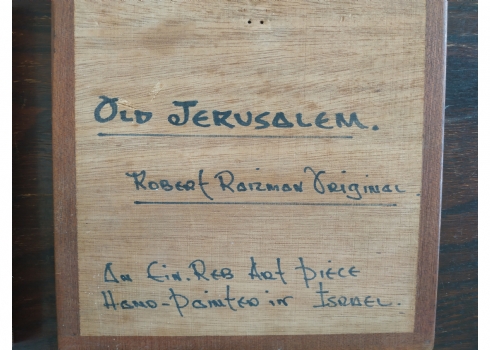 OLD JERUSALEM.
ROBERT RAIZMAN ORIGINAL
AN EIN. REB ART PIECE
HAND-PAINTED IN ISRAEL.